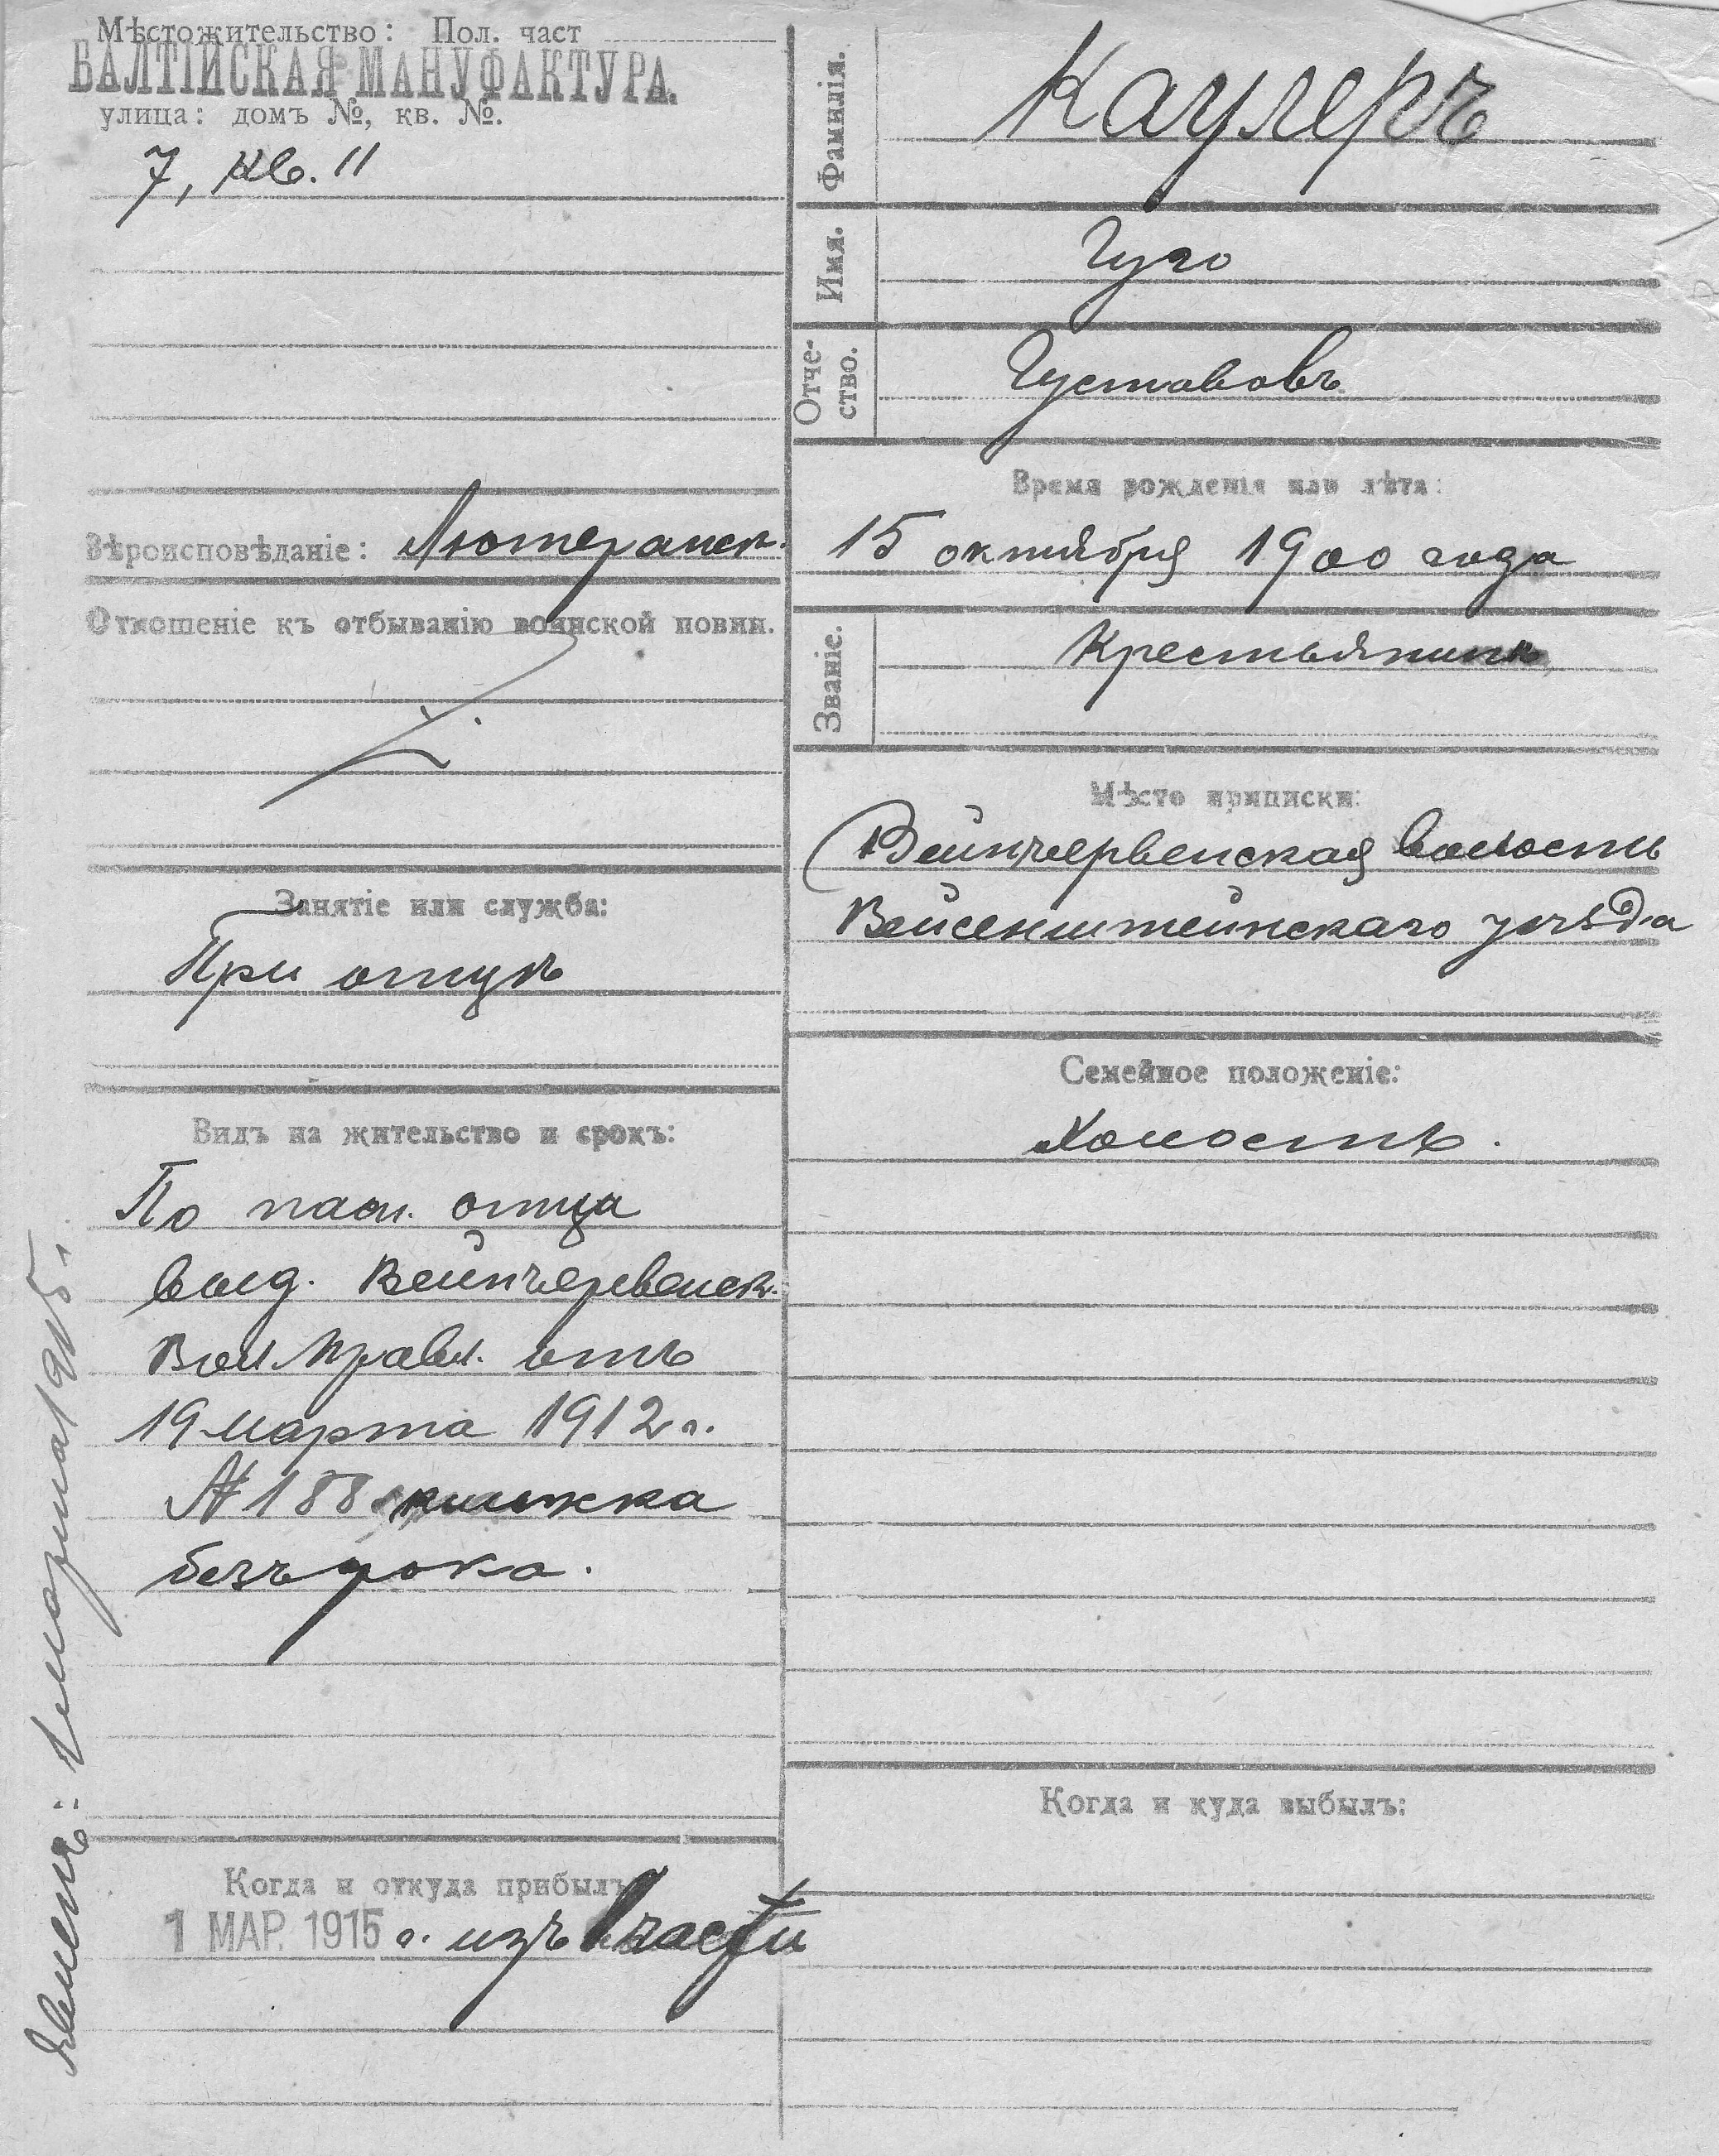 Мѣстожительство: Пол. част
БАЛТІЙСКАЯ МАНУФАКТУРА.
улица: домъ №, кв. №.
7, кв. 11
Вѣроисповѣданіе: Лютеранск.
Отношеніе къ отбыванію воинской повин.
Занятіе или служба:
При отцѣ
Видъ на жительство и срокъ:
По пасп. отца
выд. Вейнчервенск.
Вол. Правл. отъ
19 марта 1912 г.
№ 188 книжка
безъ срока.
Когда и откуда прибылъ
1 МАР. 1915 г. изъ части
Явленъ: 1 марта 1915 г.
Фамилія. Каулеръ
Имя. Гуго
Отче-
ство. Густавовъ
Время рожденія или лѣта:
15 октября 1900 года
Званіе. Крестьянинъ
Мѣсто приписки:
Вейнчервенская волость
Вейсенштейнскаго уѣзда
Семейное положеніе:
Холостъ.
Когда и куда выбылъ: